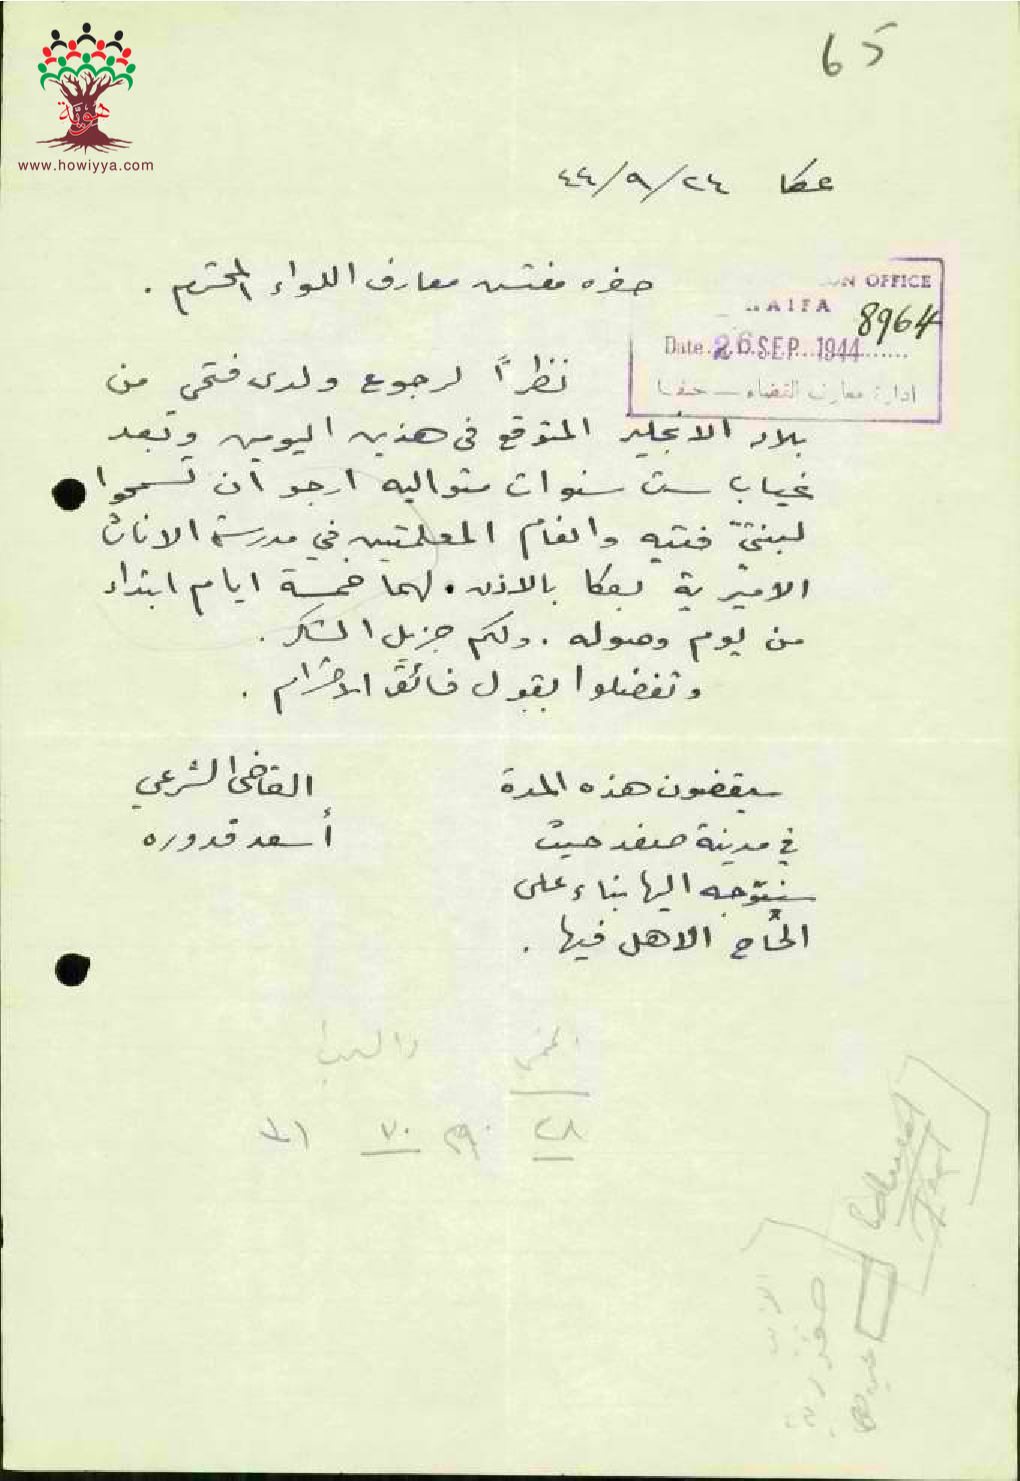 65
هوية
www.howiyya.com
عكا ٢٤/٩/٤٤
حضره مفتش معارف اللواء المحترم .
ON OFFICE
HAIFA
8964
Date 26 SEP 1944
ادارة معارف القضاء — حيفا
نظراً لرجوع ولدى فتحي من
بلاد الانجليز المتوقع فى هذين اليومين وبعد
غياب ست سنوات متواليه ارجو أن تسمحوا
لبنتيّ فتيه وانعام المعلمتين في مدرسة الاناث
الاميرية بعكا بالاذن لهما خمسة ايام ابتداء
من يوم وصوله . ولكم جزيل الشكر .
وتفضلوا بقبول فائق الاحترام .
القاضى الشرعي
أسعد قدوره
سيقضون هذه المدة
في مدينة صفد حيث
سنتوجه اليها بناء على
الحاح الاهل فيها .
٢٨ ٢٩ ٣٠